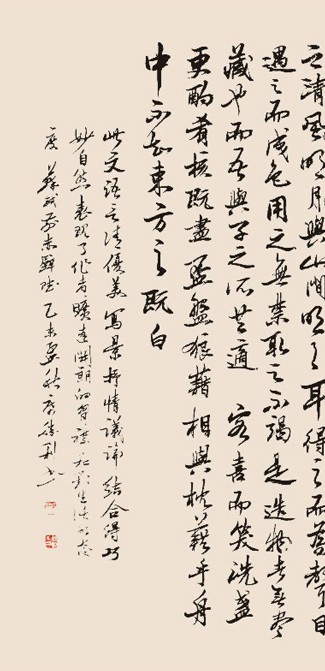 之清風明月與山間明月耳得之而為聲目
遇之而成色用之無禁取之不竭是造物者無盡
藏也而吾與子之所共適 客喜而笑洗盞
更酌肴核既盡盃盤狼藉相與枕藉乎舟
中不知東方之既白
此文語言清優美寫景抒情議論結合得巧
妙自然表現了作者曠達開朗的胸襟和對生活的態
度 蘇軾前赤壁賦 乙未孟秋